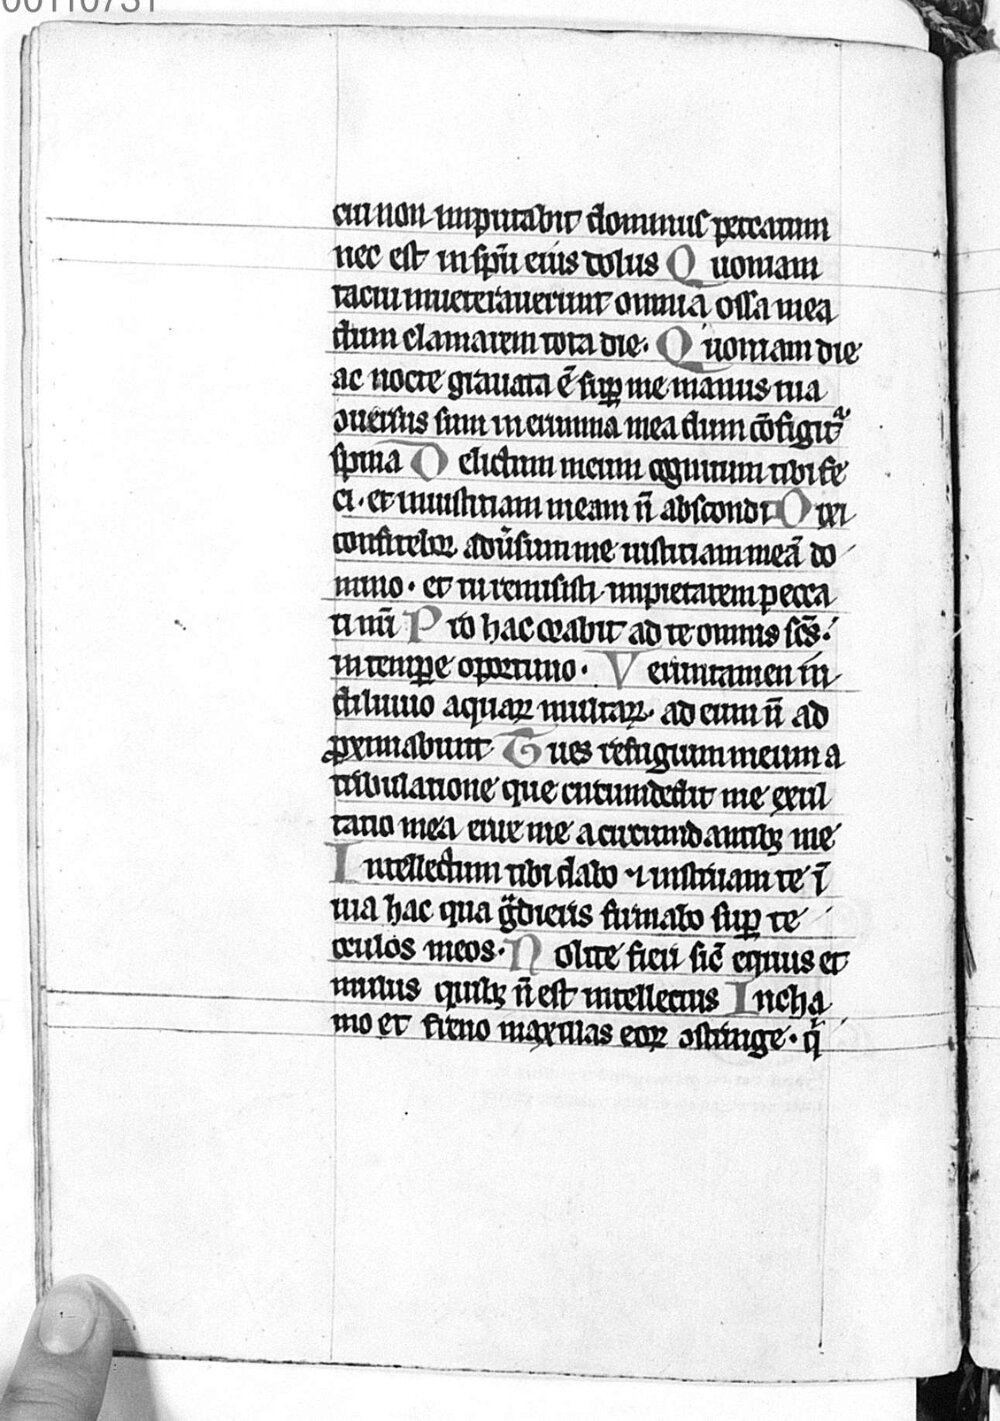 cui non imputabit dominus peccatum
nec est in spū eius dolus Quoniam
tacui inueterauerunt omnia ossa mea
dum clamarem tota die. Quoniam die
ac nocte grauata ē sup me manus tua
ꝯuersus sum in erumna mea dum cōfigit᷑
spina Delictum meum cognitum tibi fe
ci. et iniustitiam meam n̄ abscondi Dixi
confitebor adūsum me iniustitiam meā do
mino. et tu remisisti impietatem pecca
ti mi Pro hac orabit ad te omnis scs.
in tempore oportuno. Veruntamen in
diluuio aquaꝝ multaꝝ. ad eum n̄ ad
proximabunt Tu es refugium meum a
tribulatione que circumdedit me exul
tatio mea erue me a circumdantibꝫ me
Intellectum tibi dabo ⁊ instruam te ī
uia hac qua gͣdieris firmabo sup te
oculos meos. Nolite fieri sic̄ equus et
mulus quibꝫ n̄ est intellectus In cha
mo et freno maxillas eoꝝ ꝯstringe. qⁱ